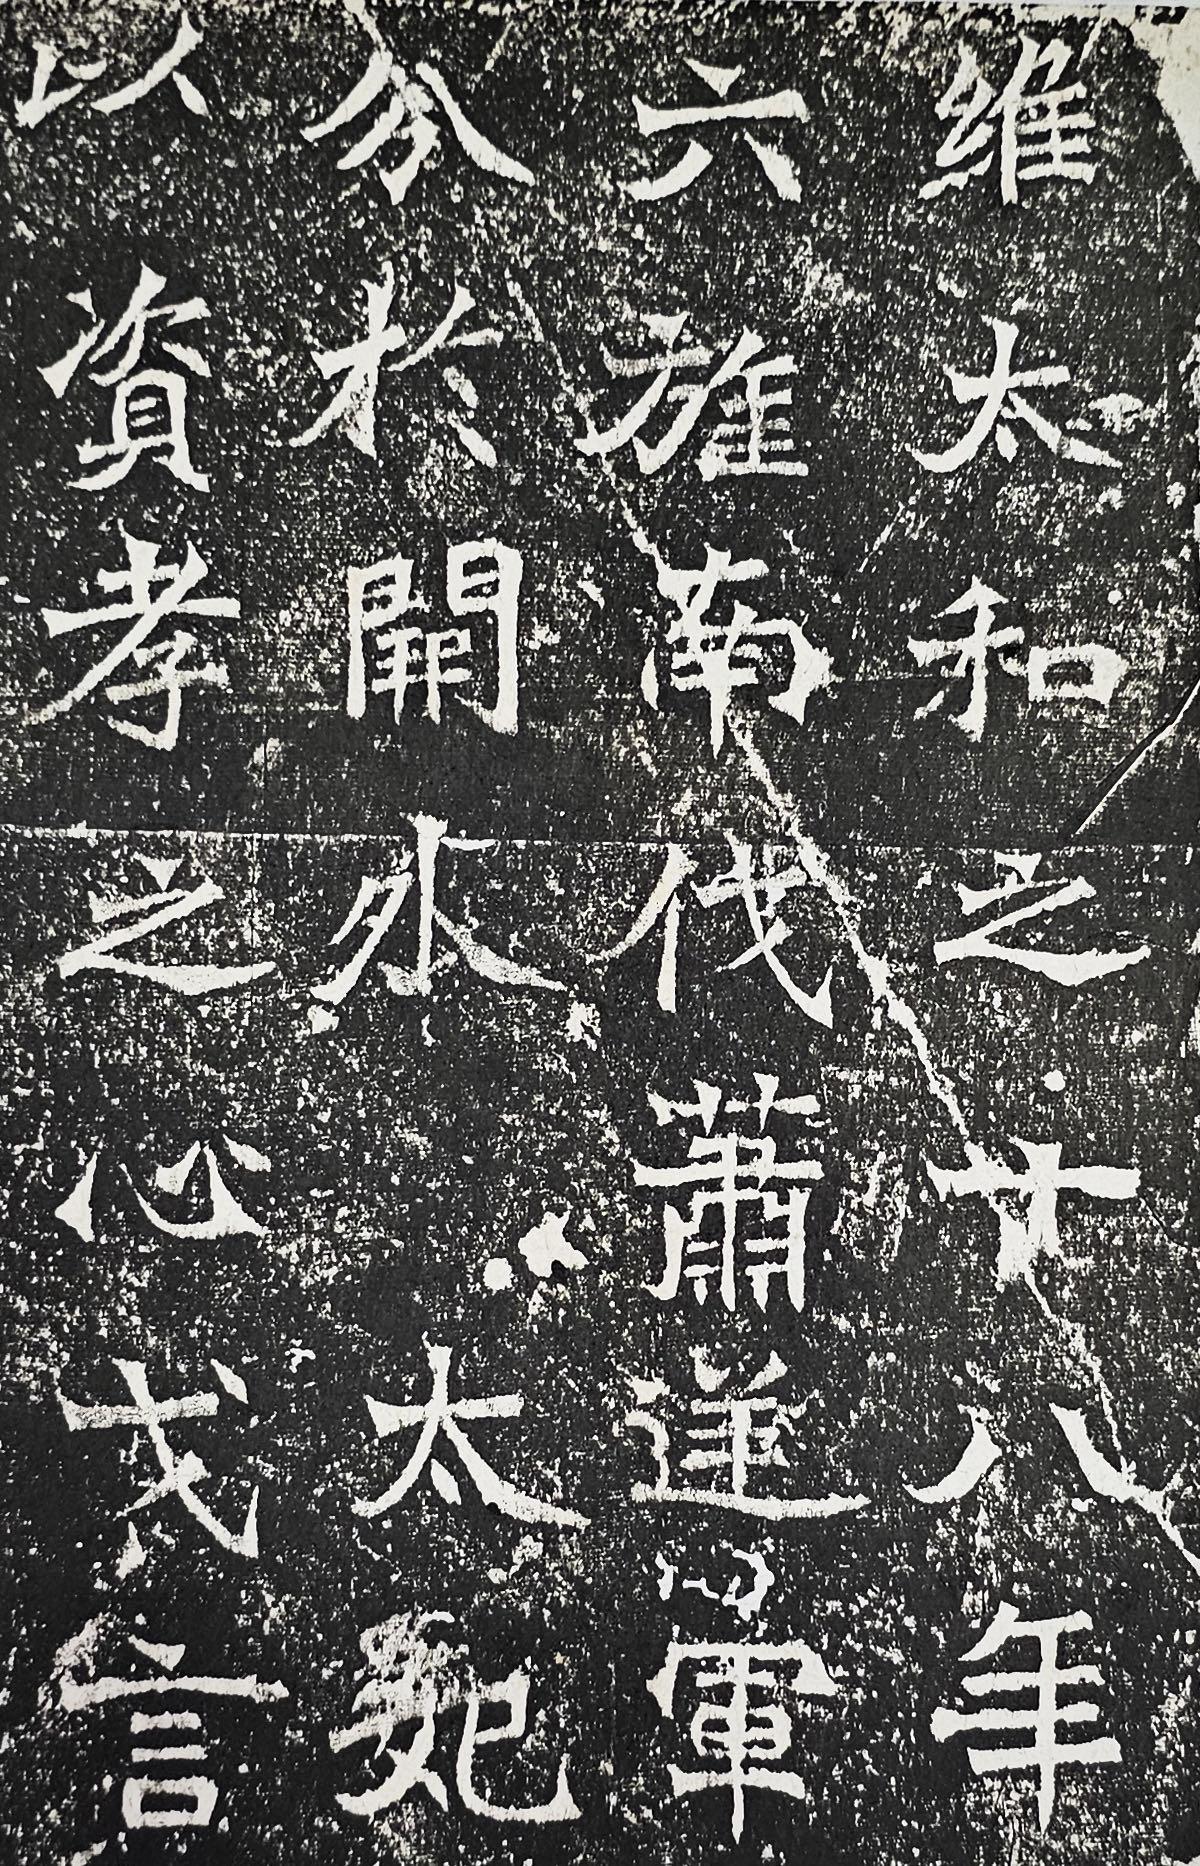 維太和之廿八年
六旌南伐蕭逆軍
分於開外太妃
以資孝之心戈言